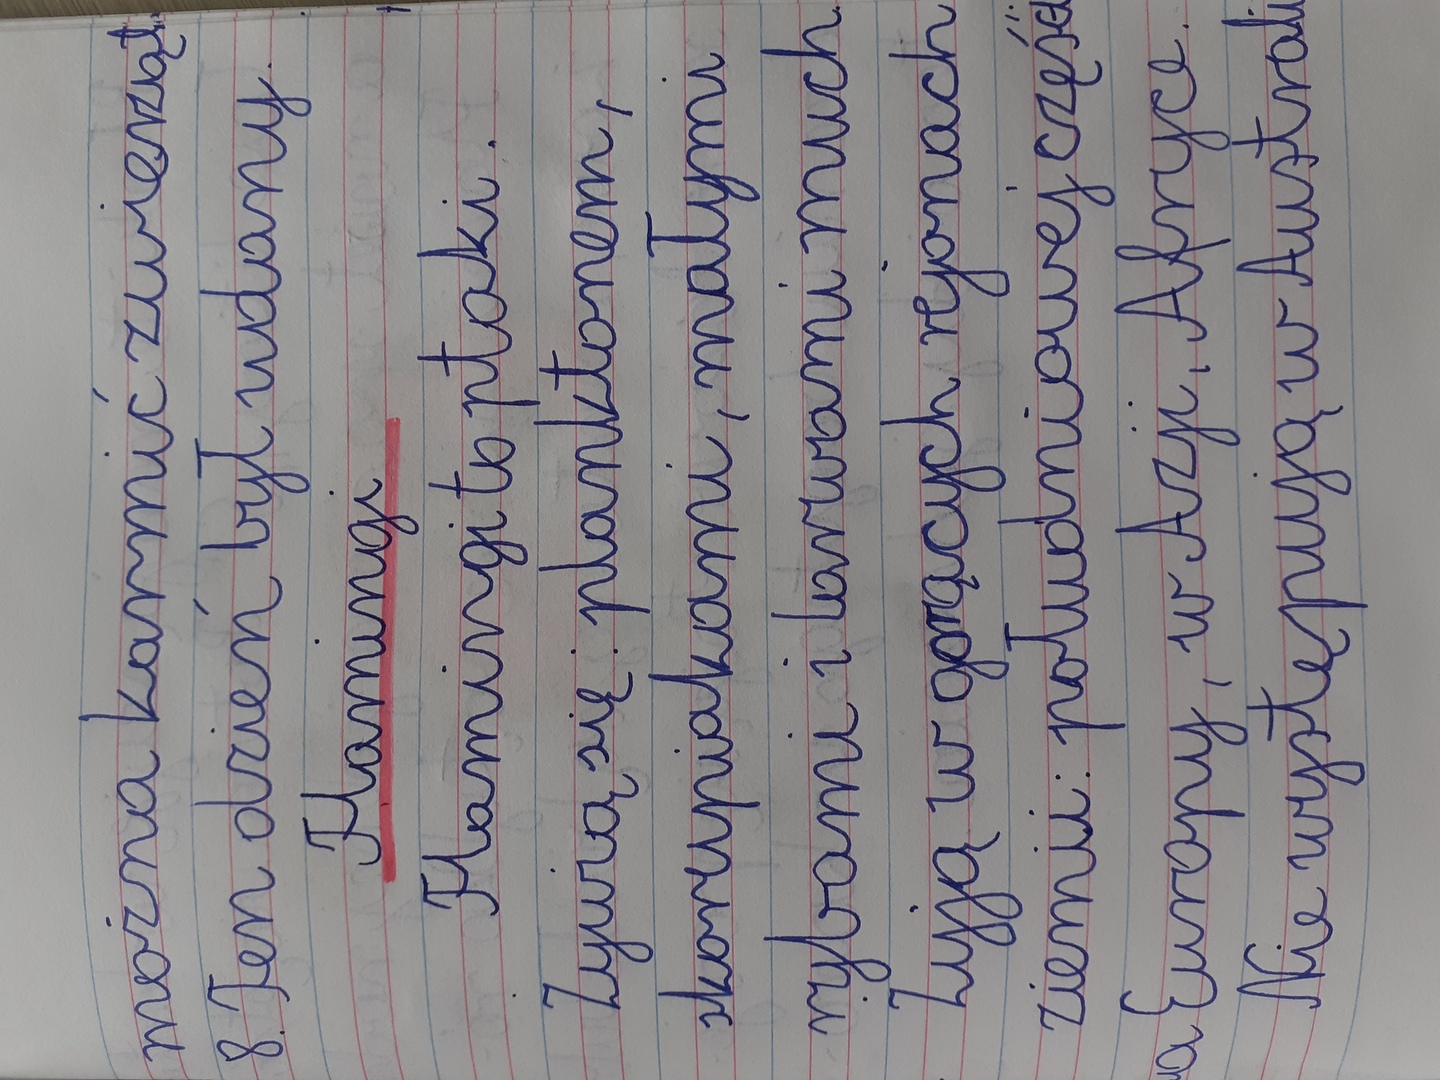 można karmić zwierząt
8. Ten dzień był udany.
Flamingi
Flamingi to ptaki.
Żywią się: planktonem,
skorupiakami, małymi
rybami i larwami much
Żyją w gorących rejonach
ziemi: południowej częś
a Europy, w Azji, Afryce.
Nie wystepują w Australi